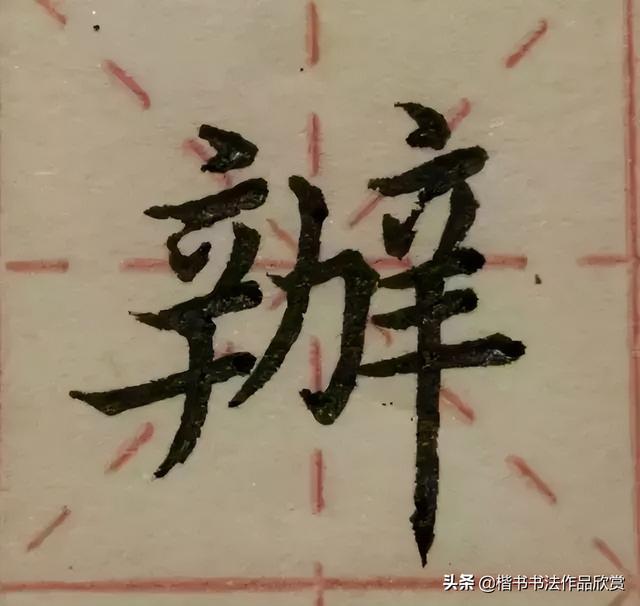 辦
头条 @楷书书法作品欣赏